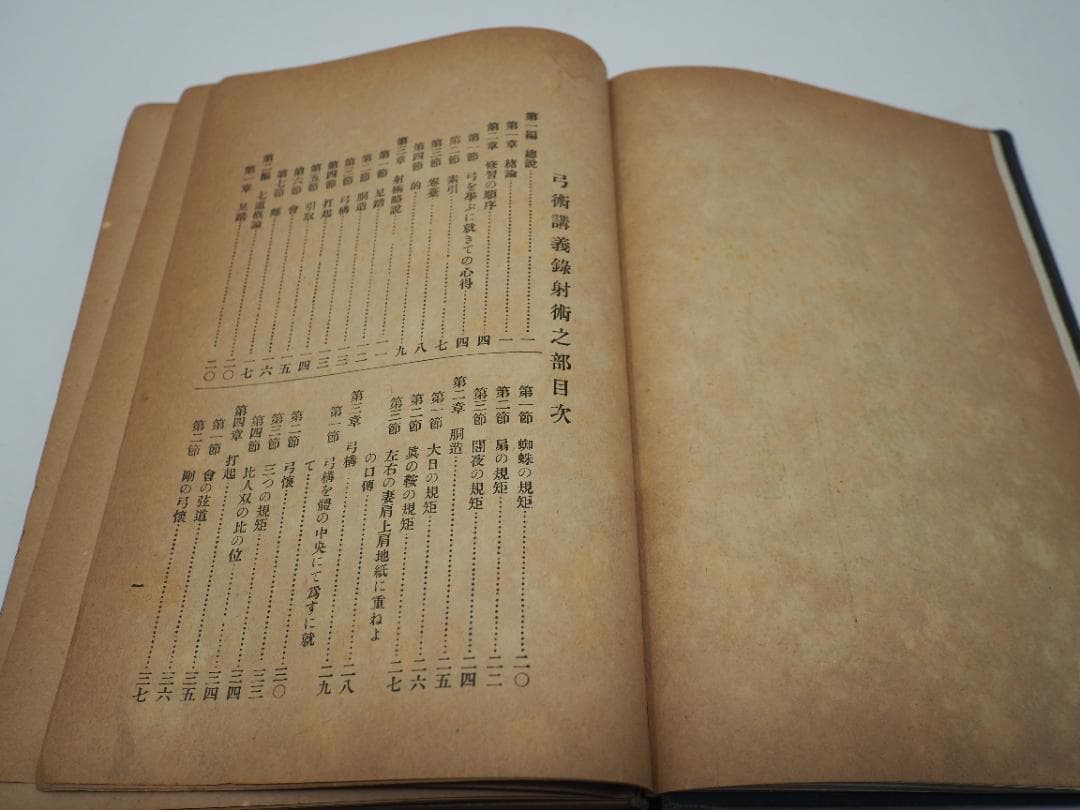 弓術講義錄射術之部目次
第一編 總說……一
第一章 緒論……一
第二章 修習の順序……四
第一節 弓を學ぶに就きての心得……四
第二節 素引……七
第三節 卷藁……八
第四節 的……九
第三章 射術略說……一一
第一節 足踏……一二
第二節 胴造……一三
第三節 弓構……一三
第四節 打起……一四
第五節 引取……一五
第六節 會……一六
第七節 離……一七
第二編 七道概論……二〇
第一章 足踏……二〇
第一節 蜘蛛の規矩……二〇
第二節 扇の規矩……二二
第三節 闇夜の規矩……二四
第二章 胴造……二五
第一節 大日の規矩……二六
第二節 の鞍の規矩……二七
第三節 左右の妻肩上肩地紙に重ねよ
の口傳……二八
第三章 弓構……二九
第一節 弓構を體の中央にて爲すに就
て……三〇
第二節 弓懷……三三
第三節 三つの規矩……三四
第四節 比人双の比の位……三四
第四章 打起……三五
第一節 會の弦道……三六
第二節 剛の弓懷……三七
一